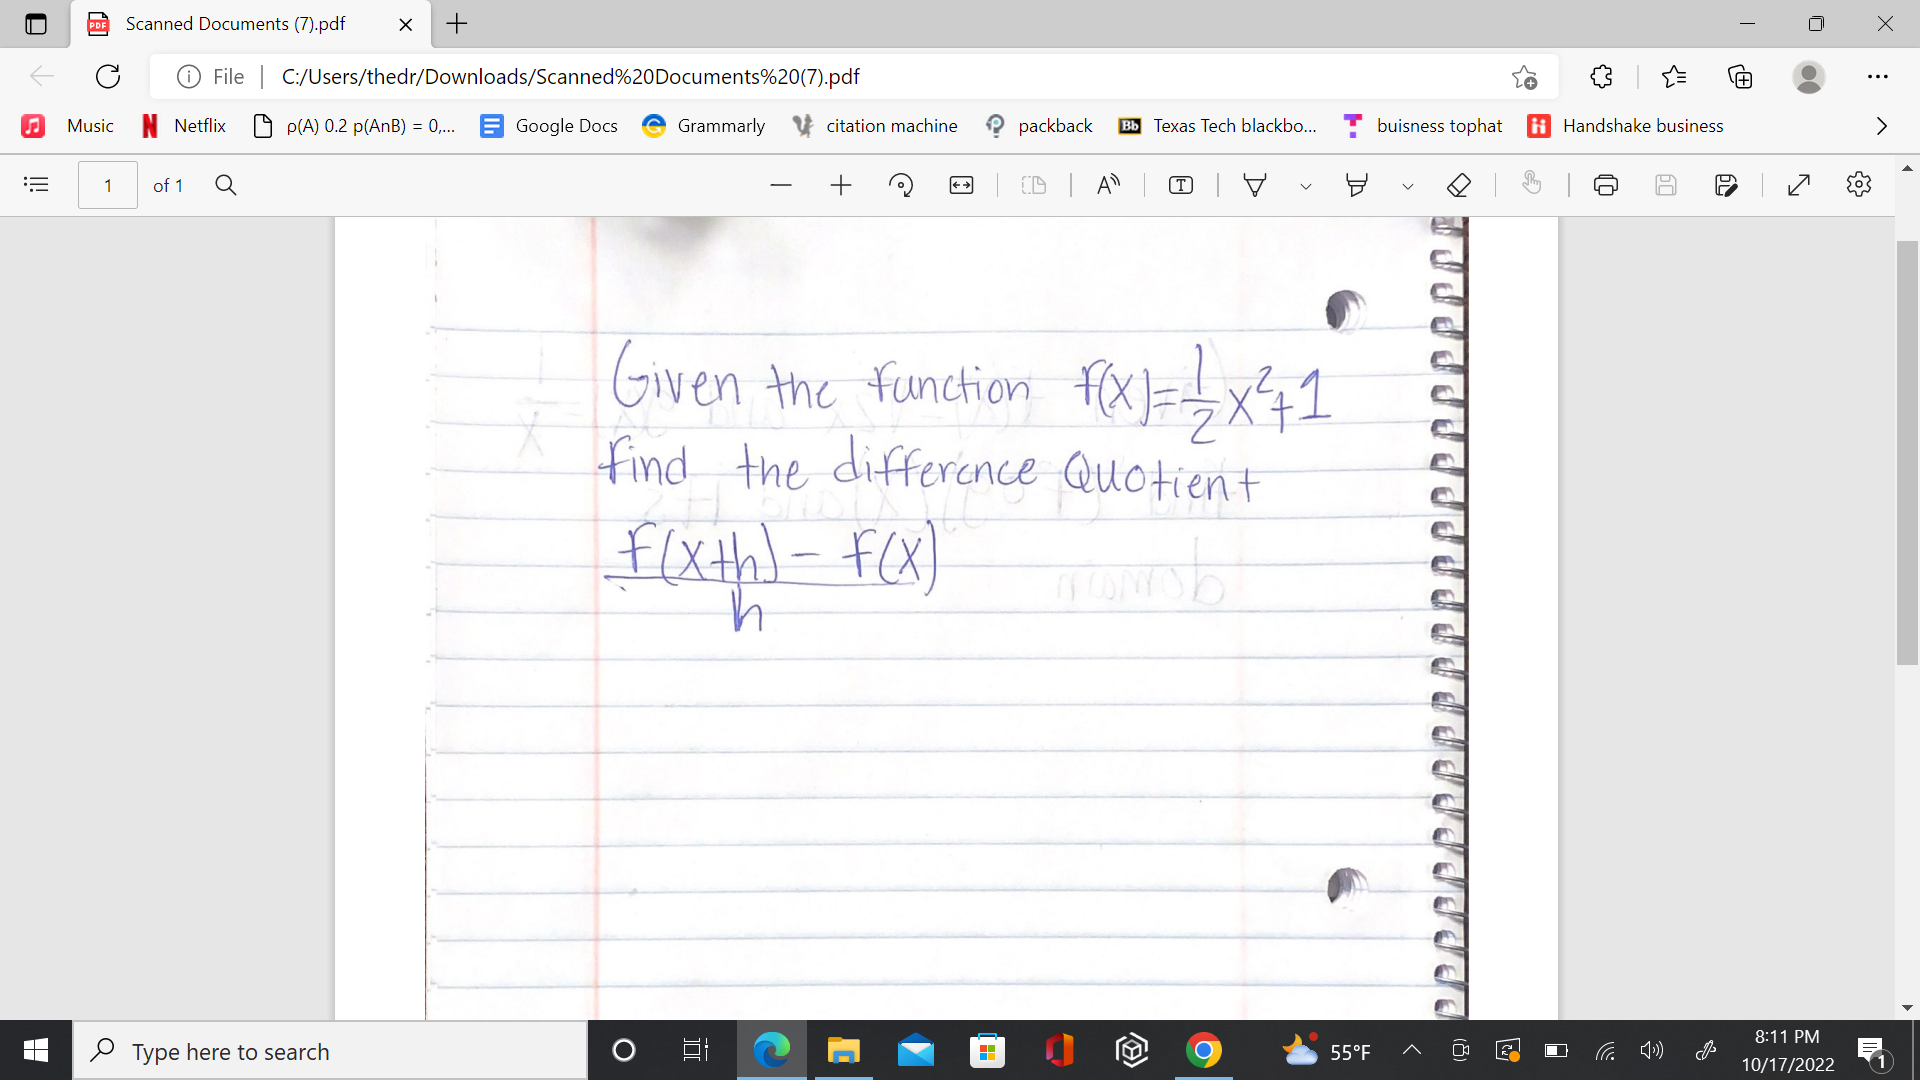 Scanned Documents (7).pdf
File
C:/Users/thedr/Downloads/Scanned%20Documents%20(7).pdf
Music
Netflix
p(A) 0.2 p(AnB) = 0,...
Google Docs
Grammarly
citation machine
packback
Texas Tech blackbo...
buisness tophat
Handshake business
1 of 1
Given the function f(x)=1/2 x²+1
find the difference Quotient
f(x+h) - f(x)
h
Type here to search
55°F
8:11 PM
10/17/2022
1